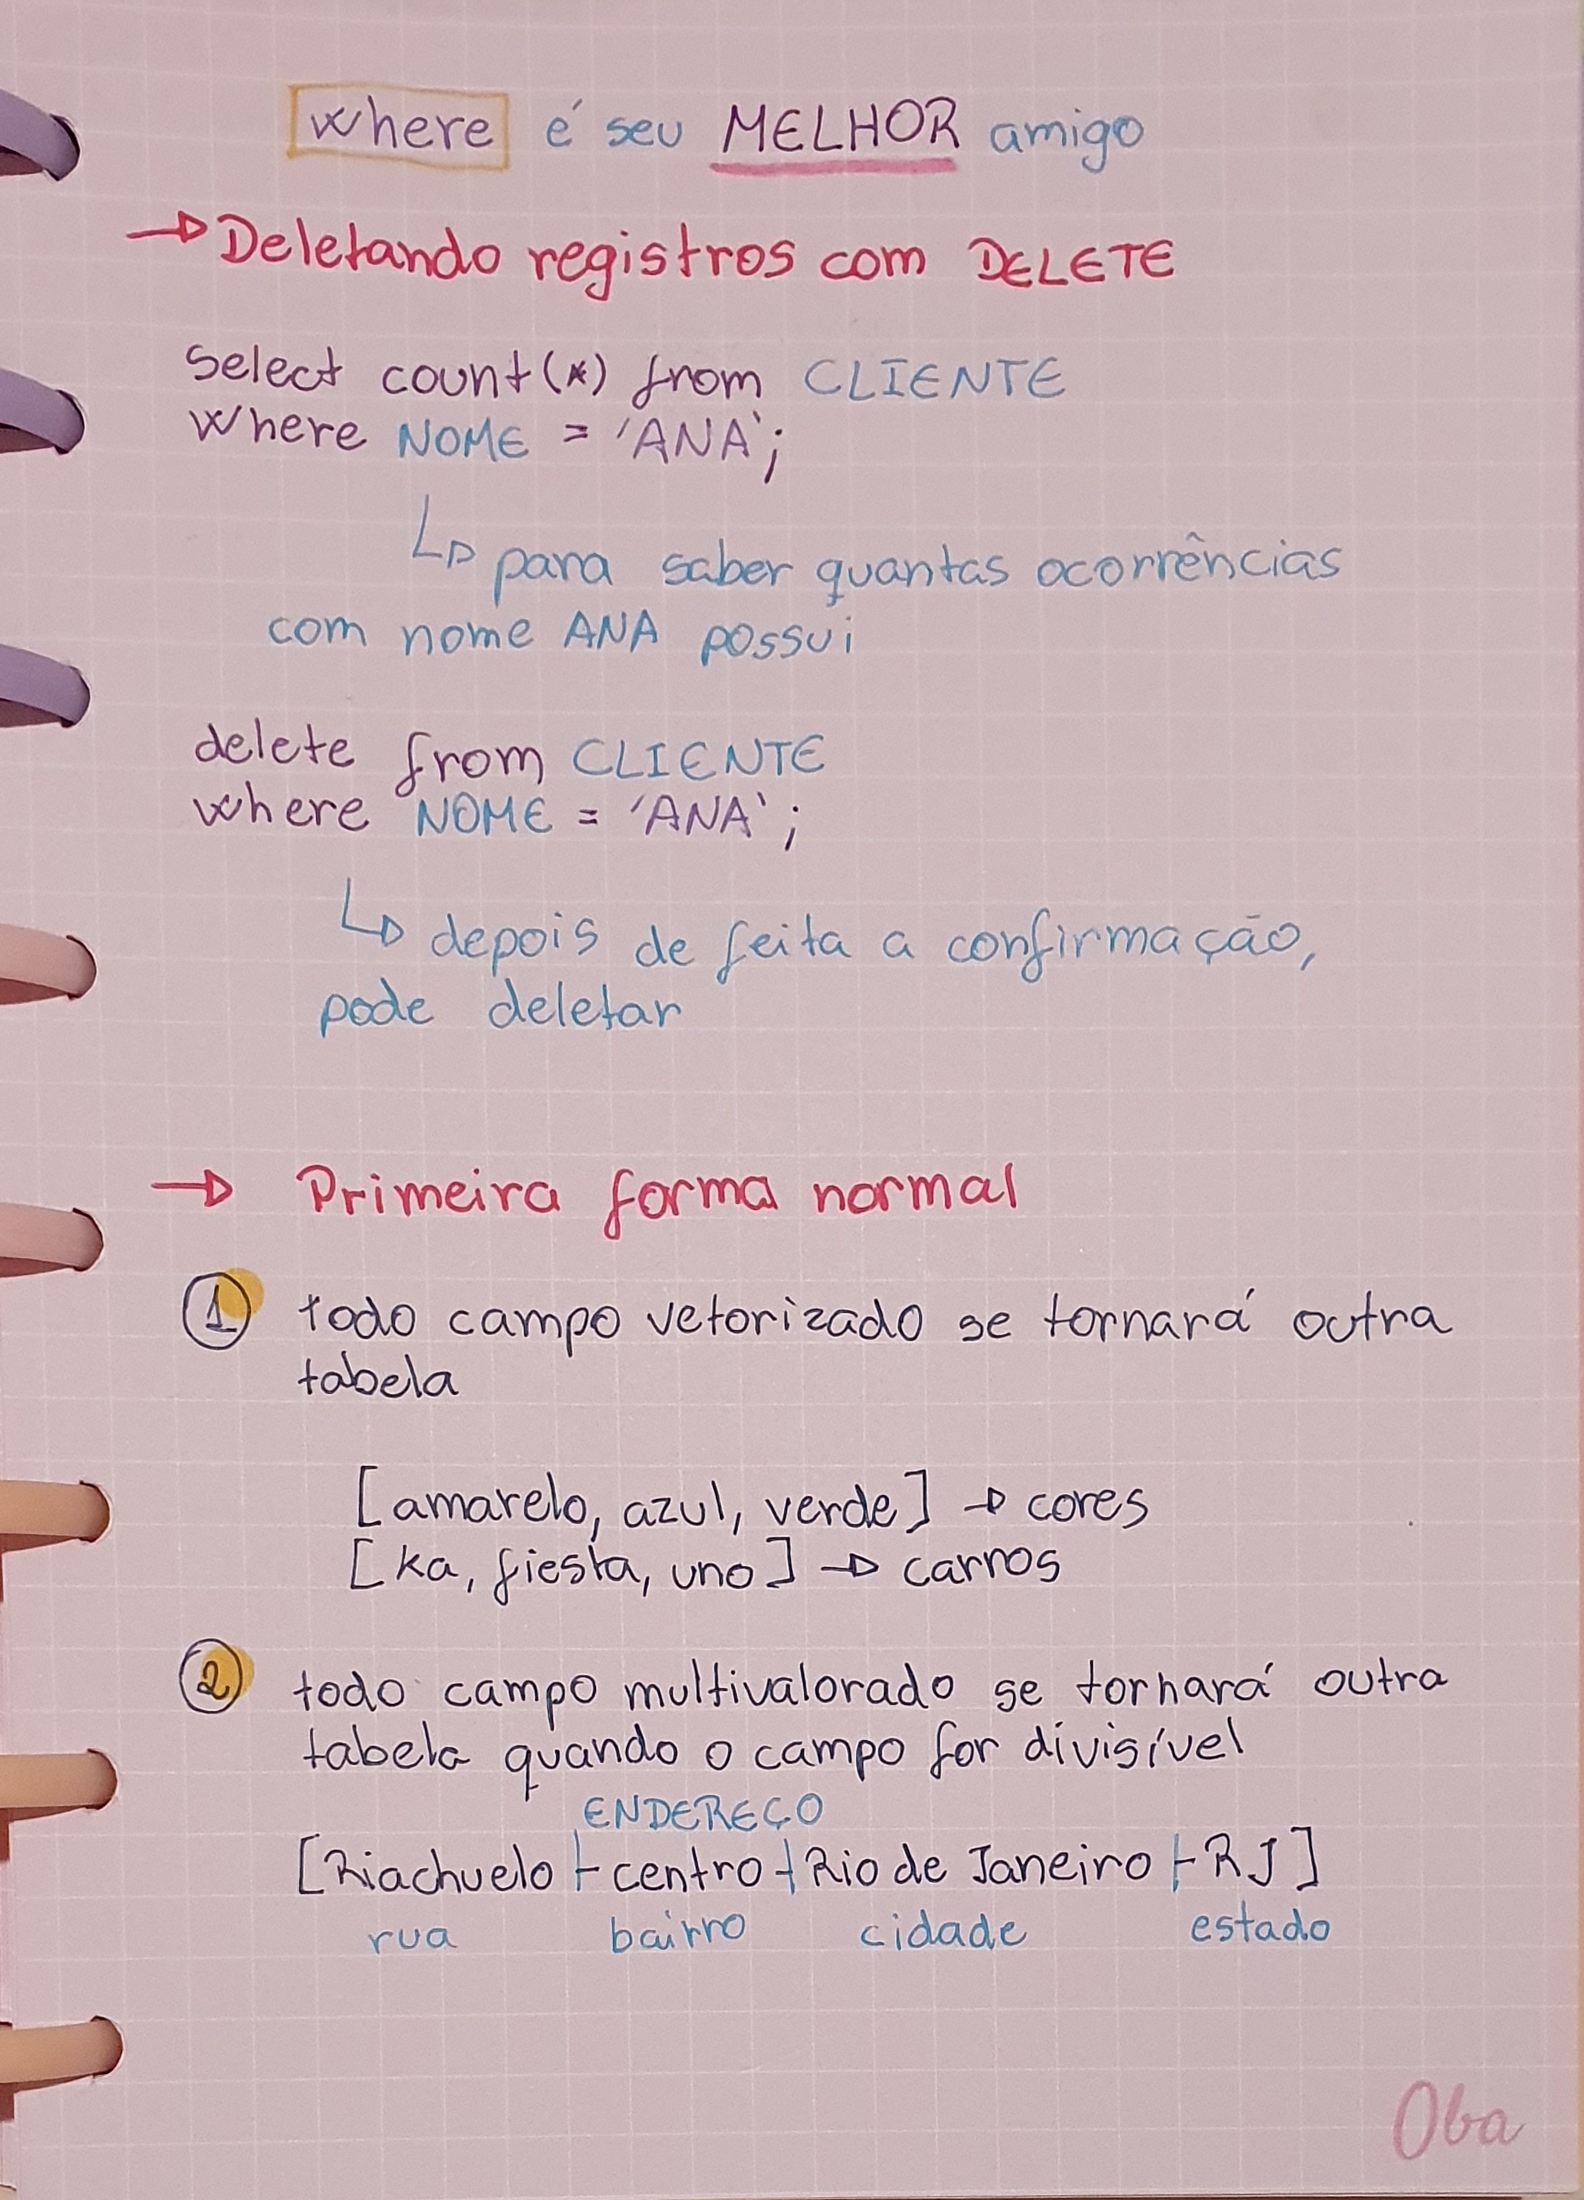 where é seu MELHOR amigo
→ Deletando registros com DELETE
Select count(*) from CLIENTE
where NOME = 'ANA';
↳ para saber quantas ocorrências
com nome ANA possui
delete from CLIENTE
where NOME = 'ANA';
↳ depois de feita a confirmação,
pode deletar
→ Primeira forma normal
① todo campo vetorizado se tornará outra
tabela
[amarelo, azul, verde] → cores
[ka, fiesta, uno] → carros
② todo campo multivalorado se tornará outra
tabela quando o campo for divisível
ENDEREÇO
[Riachuelo - centro - Rio de Janeiro - RJ]
rua bairro cidade estado
Oba